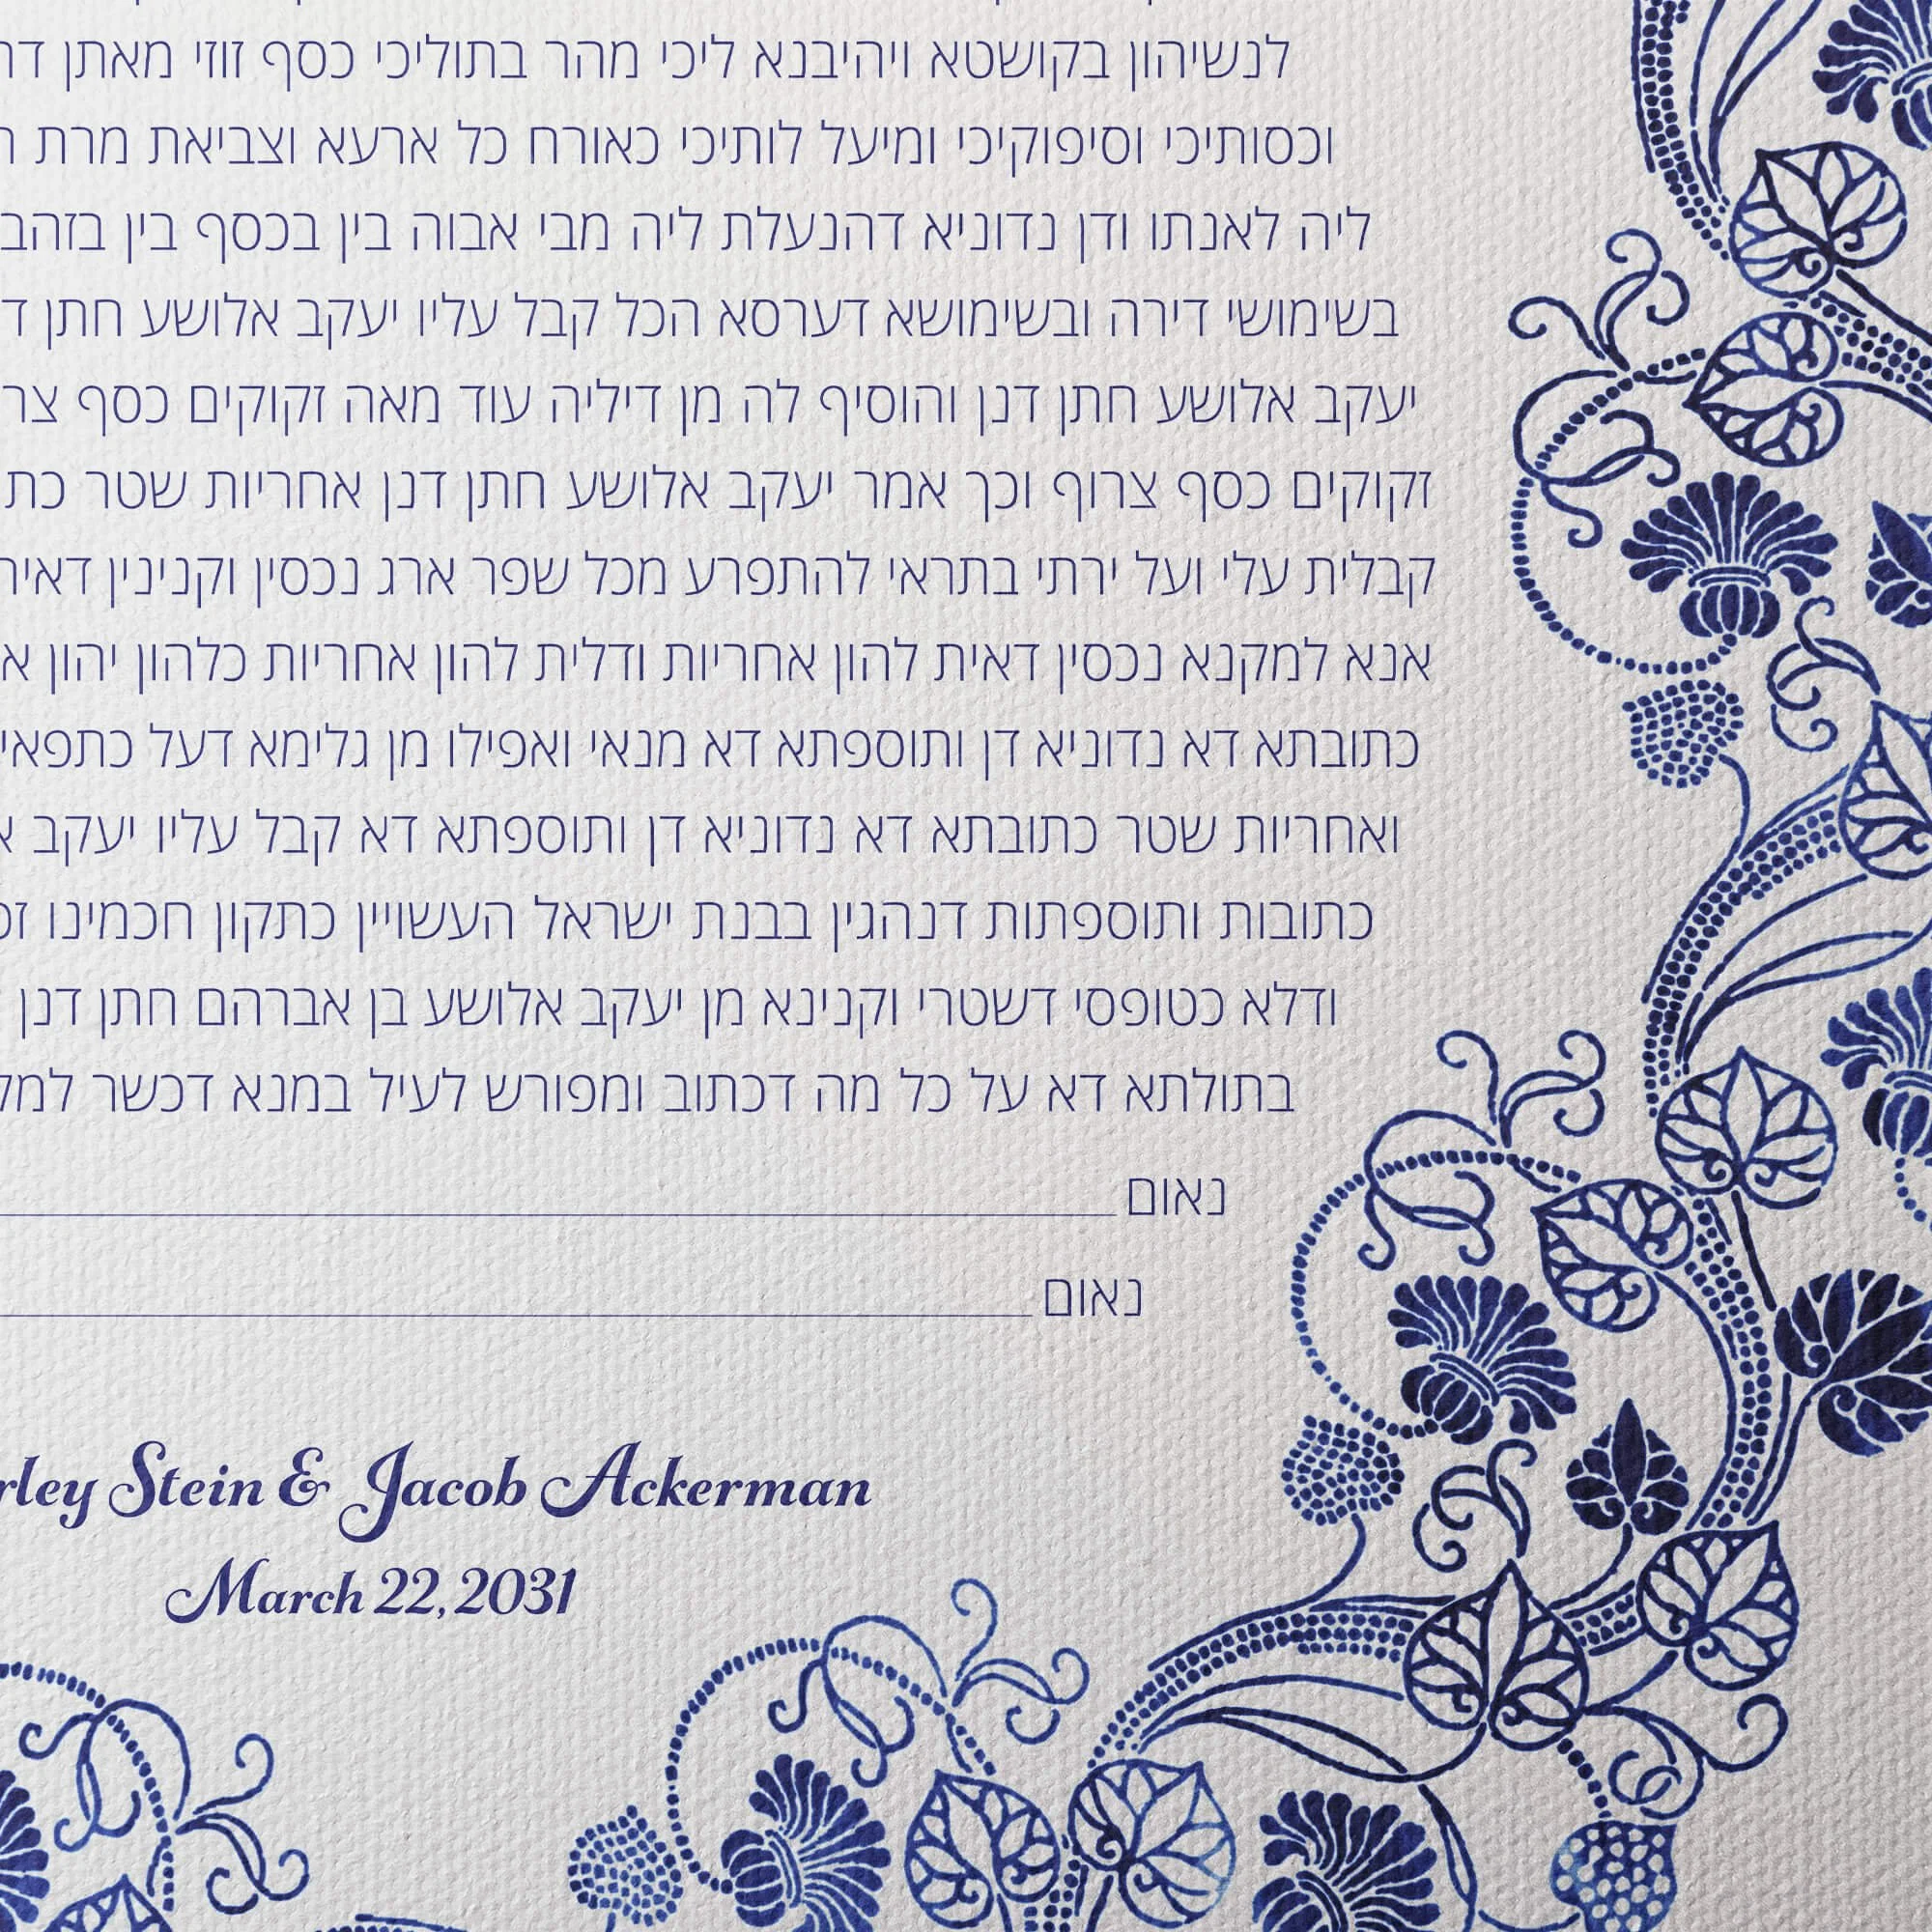 לנשיהון בקושטא ויהיבנא ליכי מהר בתוליכי כסף זוזי מאתן
וכסותיכי וסיפוקיכי ומיעל לותיכי כאורח כל ארעא וצביאת מרת
ליה לאנתו ודן נדוניא דהנעלת ליה מבי אבוה בין בכסף בין בזהב
בשימושי דירה ובשימושא דערסא הכל קבל עליו יעקב אלושע חתן
יעקב אלושע חתן דנן והוסיף לה מן דיליה עוד מאה זקוקים כסף
זקוקים כסף צרוף וכך אמר יעקב אלושע חתן דנן אחריות שטר
קבלית עלי ועל ירתי בתראי להתפרע מכל שפר ארג נכסין וקנינין
אנא למקנא נכסין דאית להון אחריות ודלית להון אחריות כלהון יהון
כתובתא דא נדוניא דן ותוספתא דא מנאי ואפילו מן גלימא דעל
ואחריות שטר כתובתא דא נדוניא דן ותוספתא דא קבל עליו יעקב
כתובות ותוספתות דנהגין בבנת ישראל העשויין כתקון חכמינו
ודלא כטופסי דשטרי וקנינא מן יעקב אלושע בן אברהם חתן דנן
בתולתא דא על כל מה דכתוב ומפורש לעיל במנא דכשר
נאום
נאום
rley Stein & Jacob Ackerman
March 22, 2031